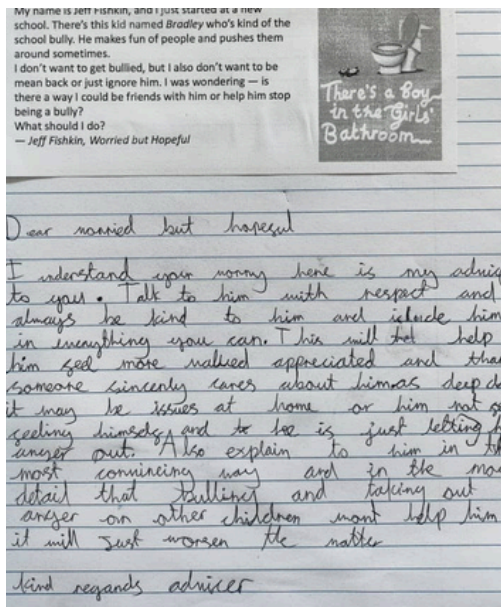 My name is Jeff Fishkin, and I just started at a new
school. There's this kid named Bradley who's kind of the
school bully. He makes fun of people and pushes them
around sometimes.
I don't want to get bullied, but I also don't want to be
mean back or just ignore him. I was wondering — is
there a way I could be friends with him or help him stop
being a bully?
What should I do?
— Jeff Fishkin, Worried but Hopeful
There's a Boy
in the Girls'
Bathroom
Dear worried but hopeful
I understand your worry here is my advic
to you. Talk to him with respect and
always be kind to him and include him
in everything you can. This will help
him feel more valued appreciated and tha
someone sincerly cares about him as deep d
it may be issues at home or him not
feeling himself and he is just letting h
anger out. Also explain to him in th
most convincing way and in the mo
detail that bulling and taking out
anger on other children wont help him
it will just worsen the matter
kind regards advicer